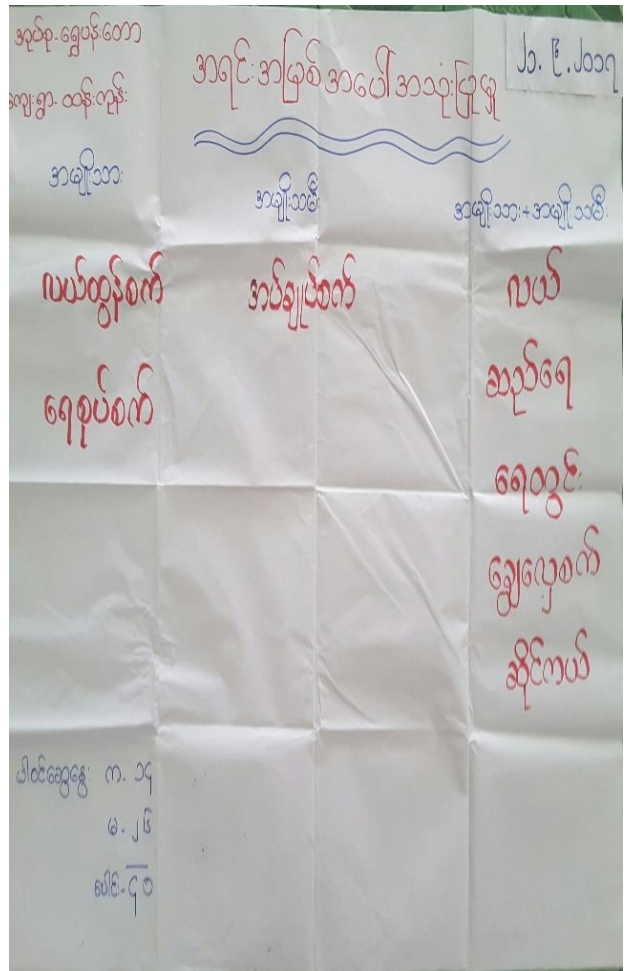 အုပ်စု-ရွှေပန်းတော
ကျေးရွာ-ထန်းကုန်း
အရင်းအမြစ်အပေါ်အသုံးပြုမှု
၂၁.၉.၂၀၁၇
အမျိုးသား
အမျိုးသမီး
အမျိုးသား+အမျိုးသမီး
လယ်ထွန်စက်
အပ်ချုပ်စက်
လယ်
ရေစုပ်စက်
ဆည်ရေ
ရေတွင်း
ချွေလှေ့စက်
ဆိုင်ကယ်
ပါဝင်ဆွေးနွေး က-၁၄
မ-၂၆
ပေါင်း-၄၀